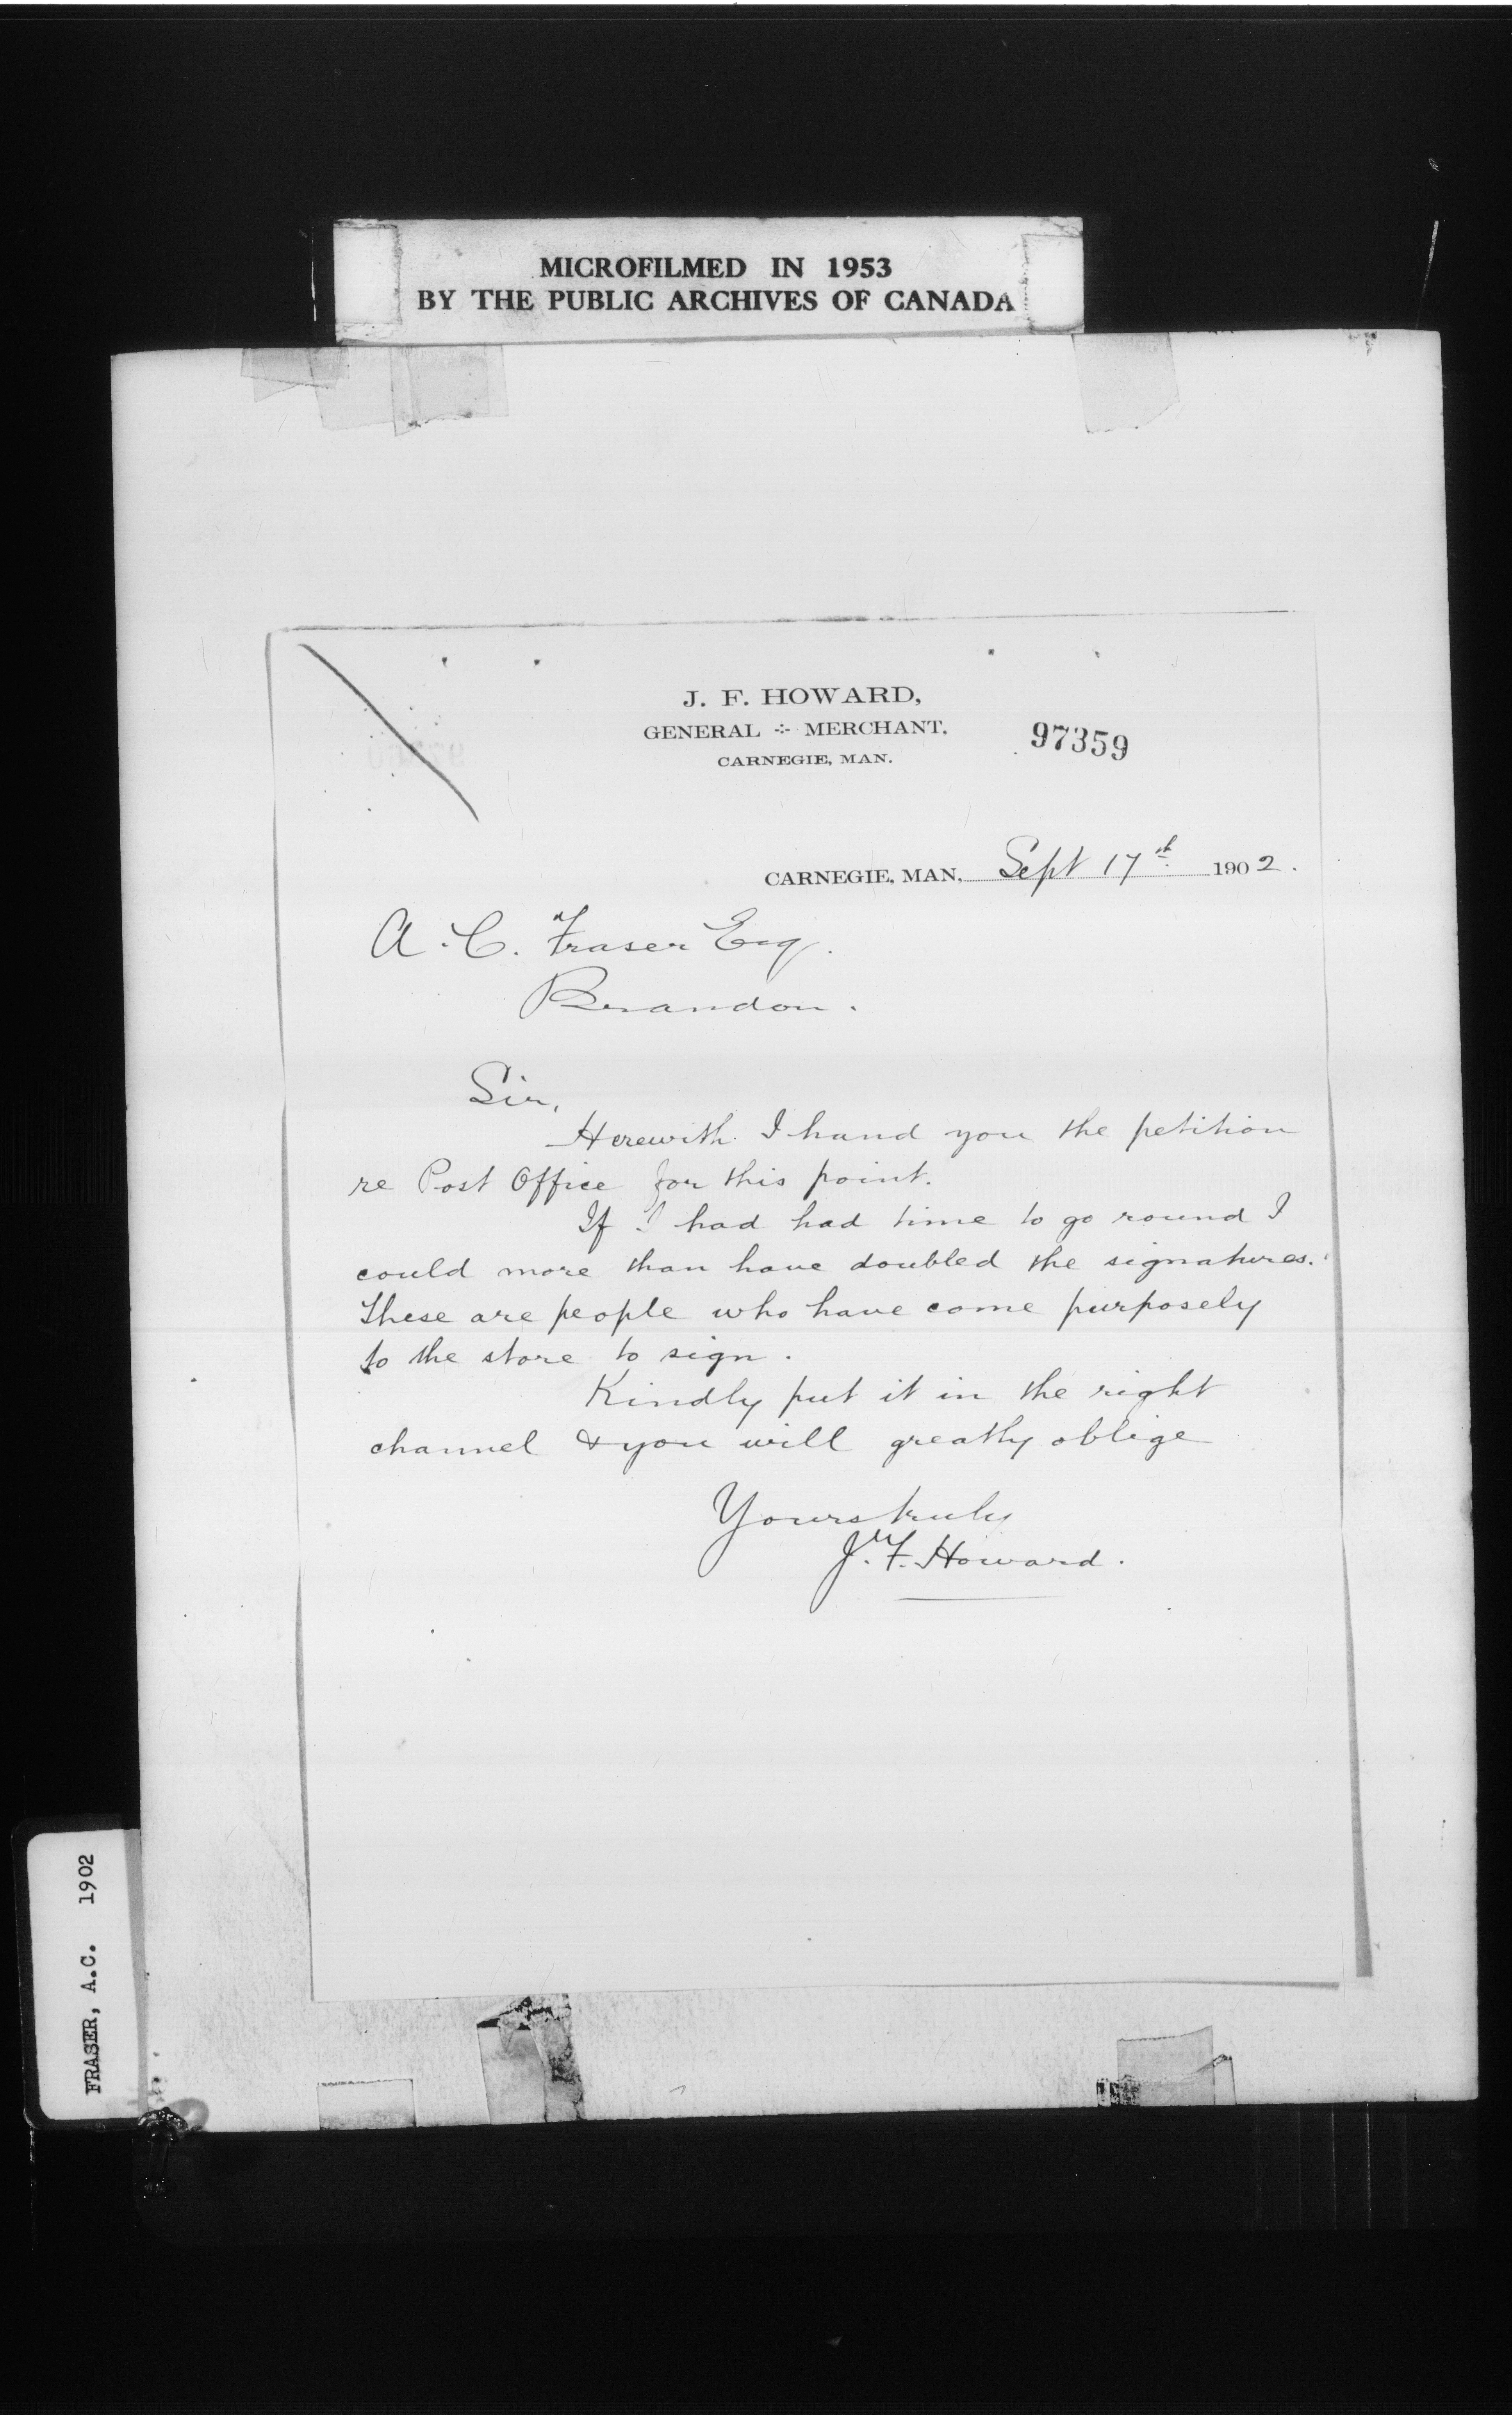 MICROFILMED IN 1953
BY THE PUBLIC ARCHIVES OF CANADA
J. F. HOWARD,
GENERAL MERCHANT,
CARNEGIE, MAN.
97359
CARNEGIE, MAN, Sept 17th 1902.
A. C. Fraser Esq.
Brandon.
Sir,
Herewith I hand you the petition
re Post Office for this point.
If I had had time to go round I
could more than have doubled the signatures.
These are people who have come purposely
to the store to sign.
Kindly put it in the right
channel & you will greatly oblige
Yours truly
J. F. Howard.
FRASER, A.C. 1902